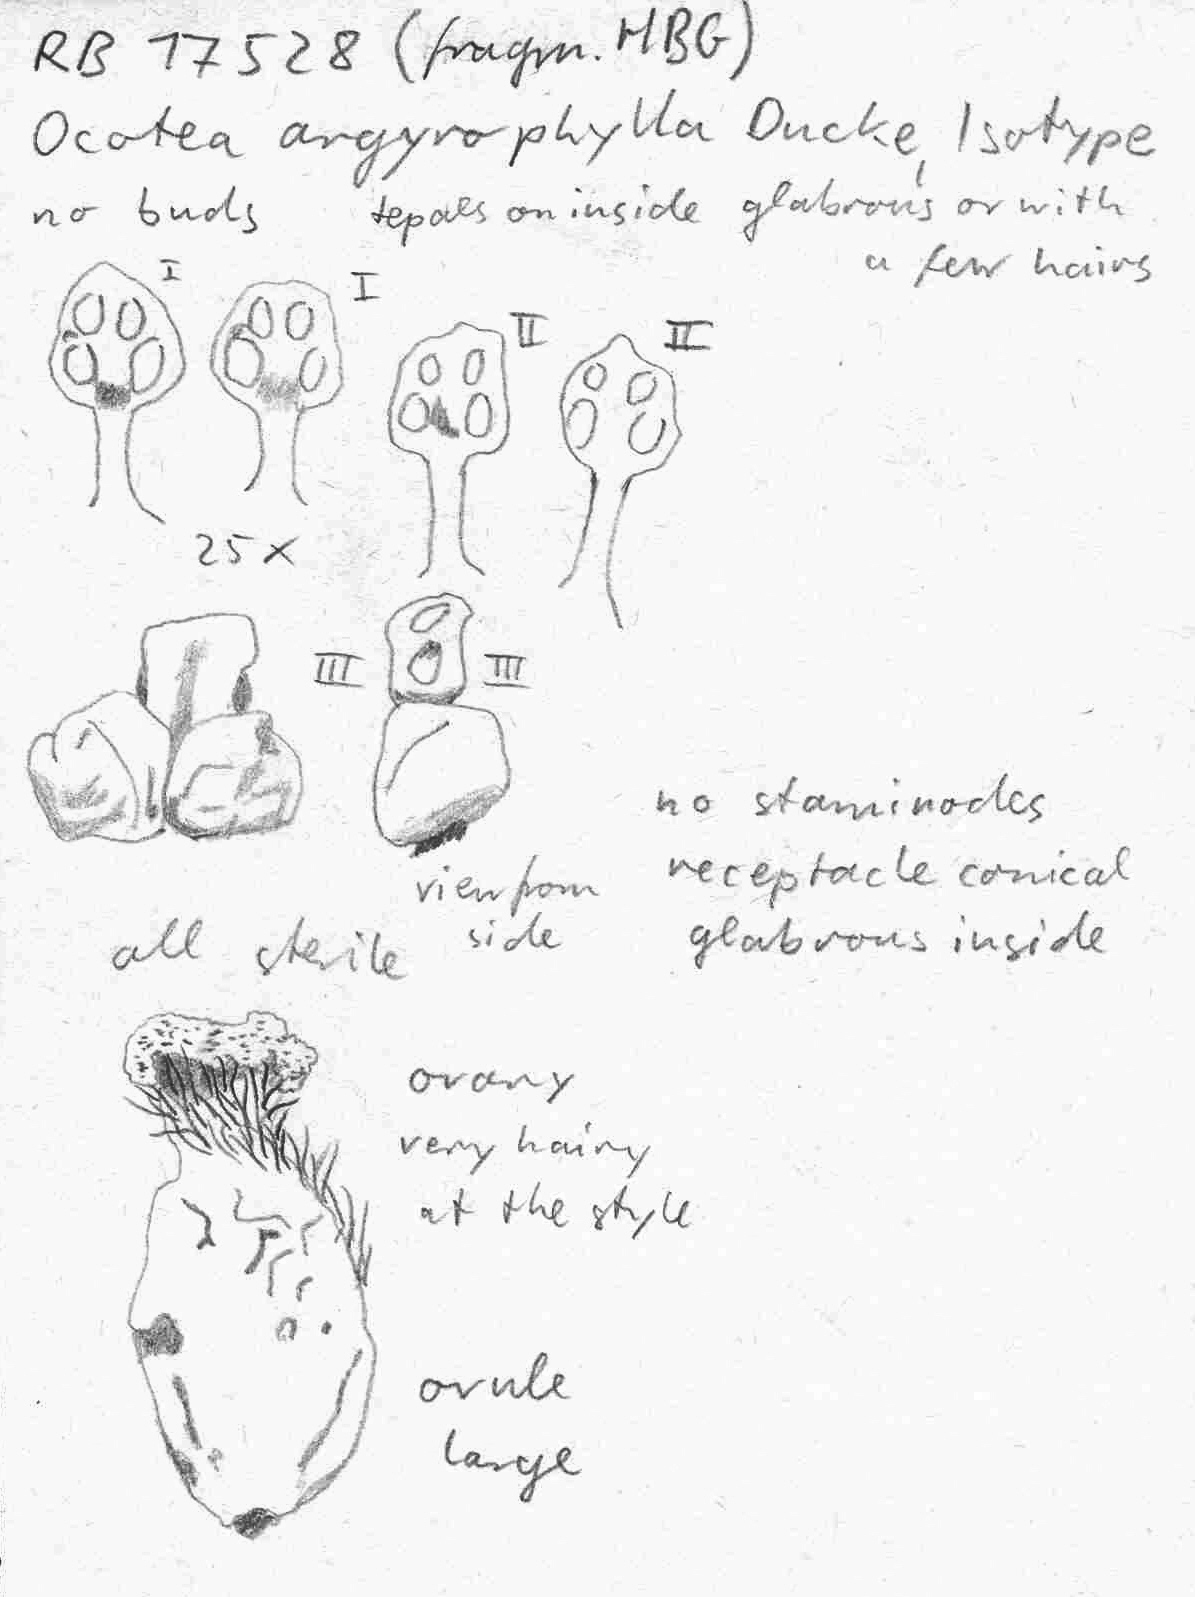 RB 17528 (fragm. HBG)
Ocotea argyrophylla Ducke, Isotype
no buds tepals on inside glabrous or with
a few hairs
I I II II
25 x
III III
no staminodes
receptacle conical
glabrous inside
view from
side
all sterile
ovary
very hairy
at the style
ovule
large